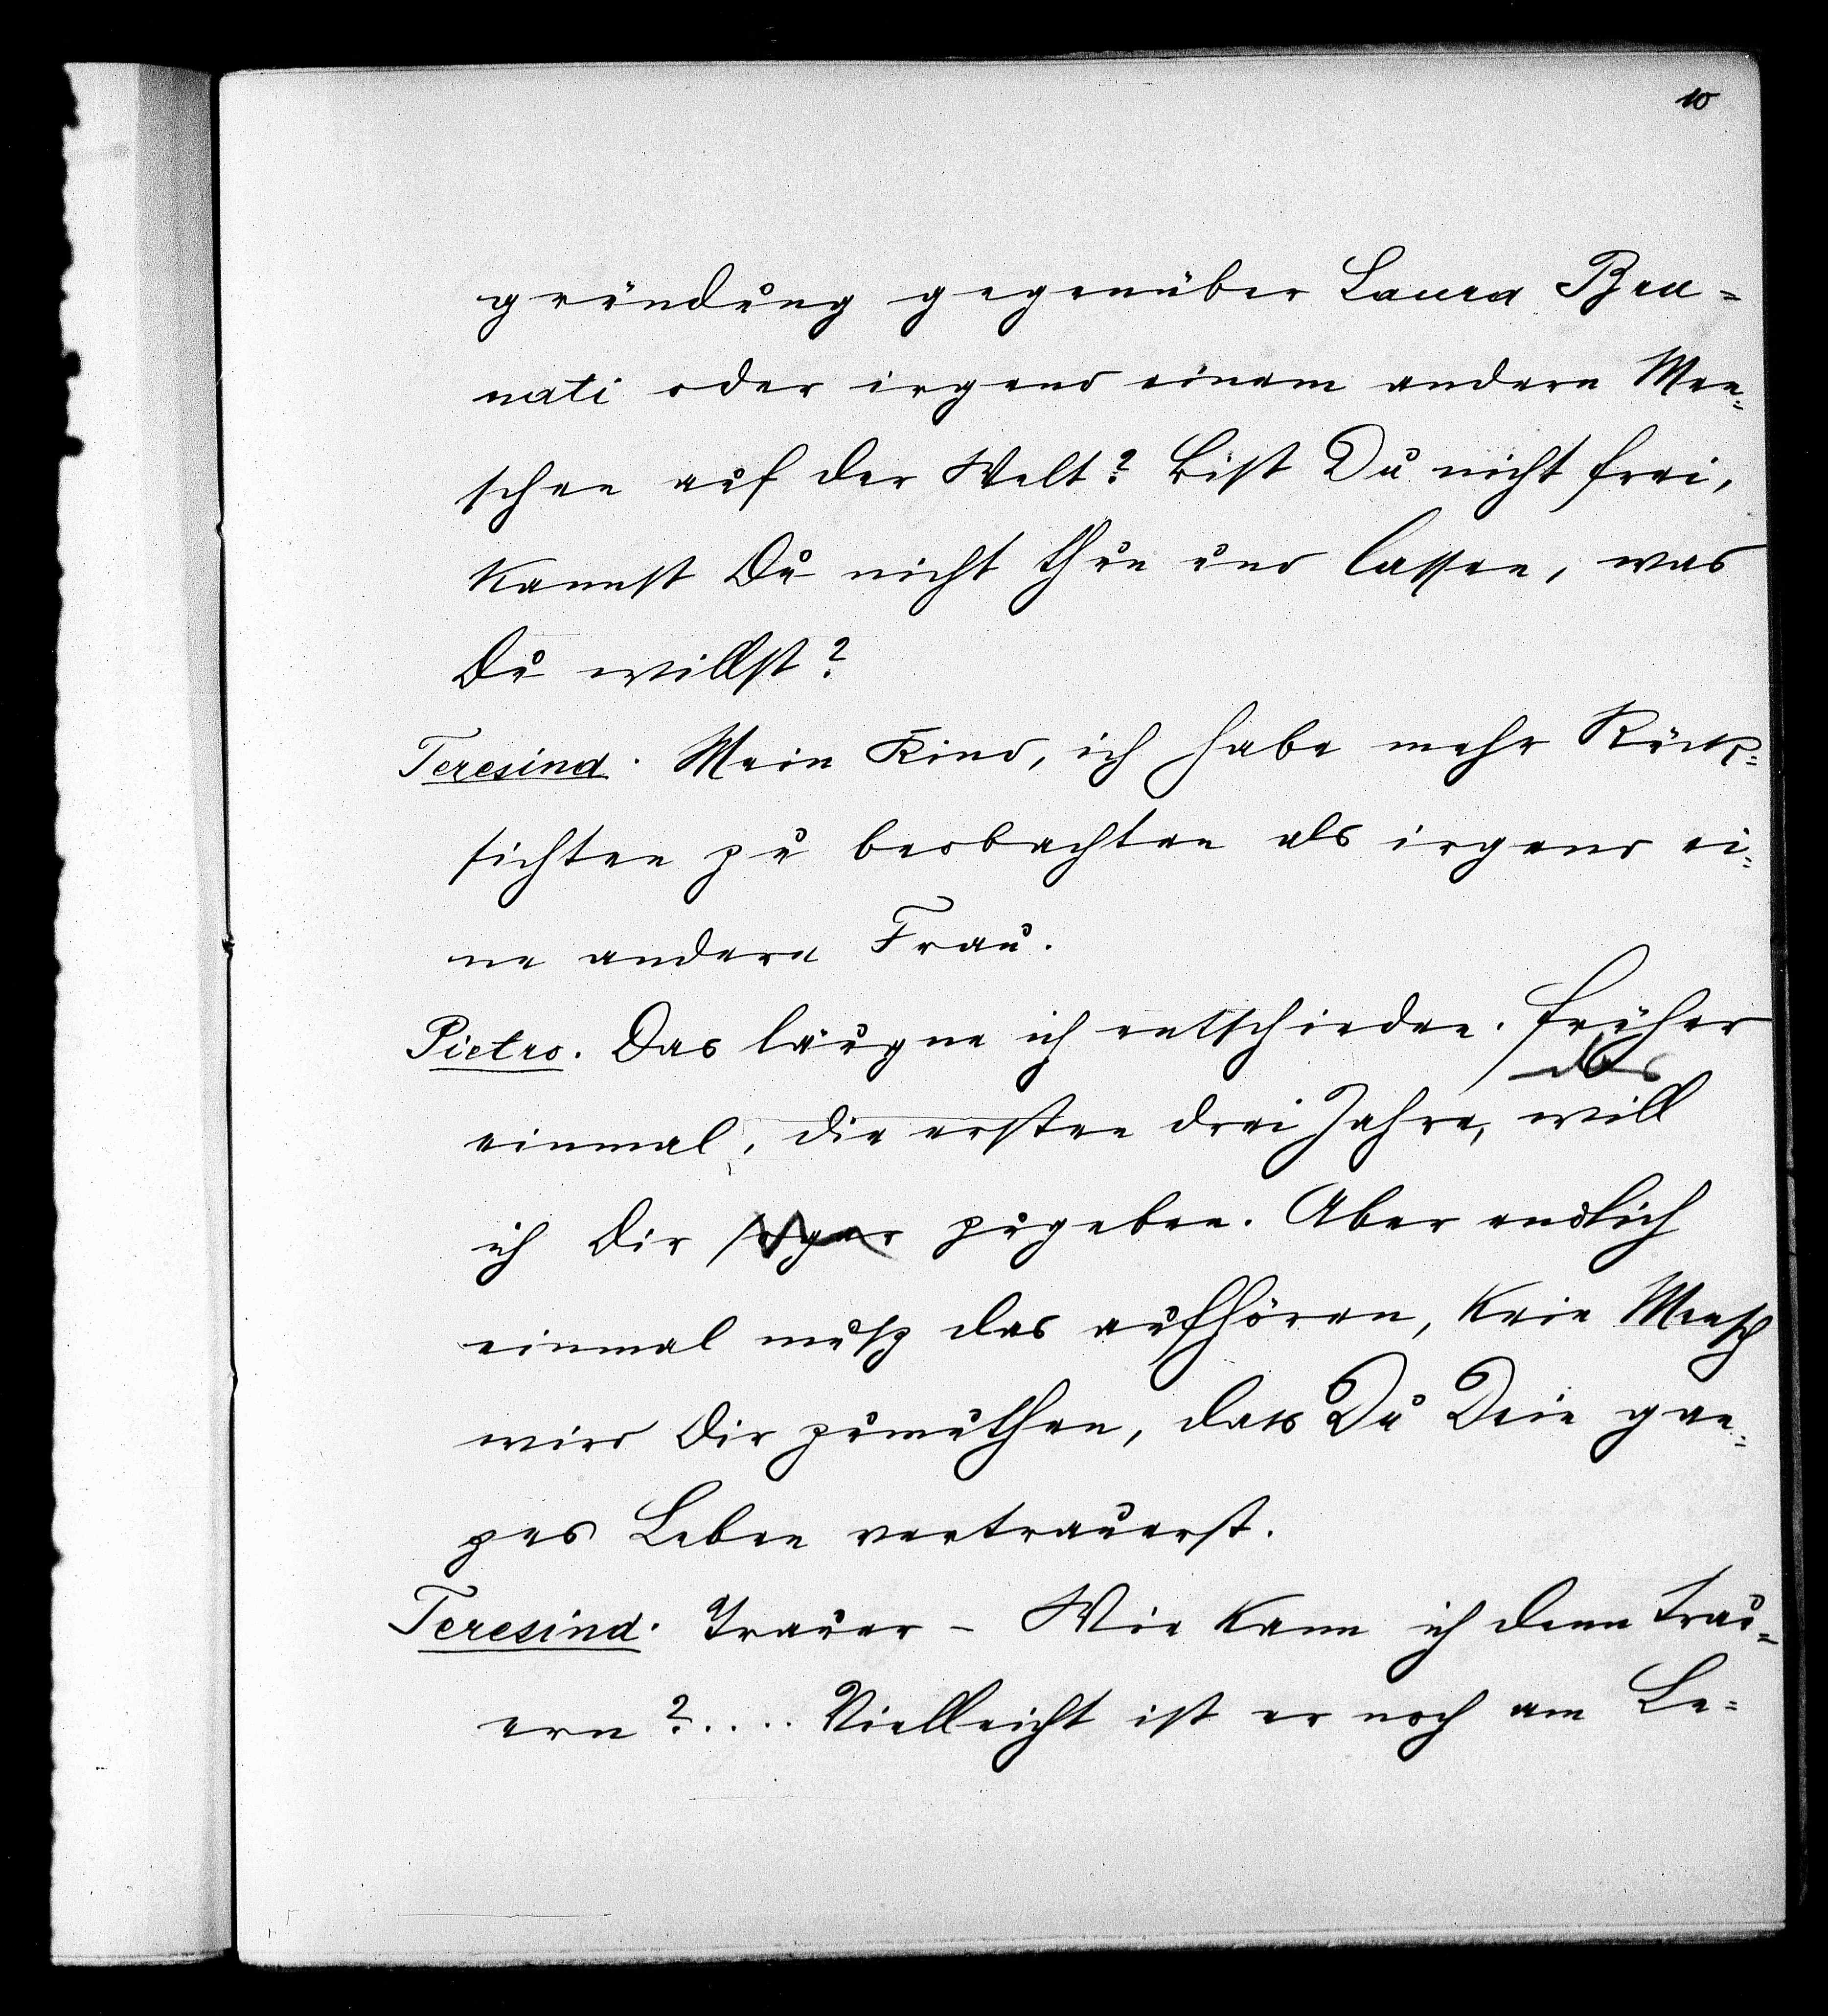 10
gründung gegenüber Laura Bru=
nati oder irgend einem andern Men=
schen auf der Welt? Bist Du nicht frei,
kannst Du nicht thun und lassen, was
Du willst?
Teresina. Mein Kind, ich habe mehr Rück=
sichten zu beobachten als irgend ei=
ne andere Frau.
Pietro. Das läugne ich entschieden. Früher
das
einmal, die ersten drei Jahre, will
ich Dir sogar zugeben. Aber endlich
einmal muß das aufhören, kein Mensch
wird Dir zumuthen, dass Du Dein gan=
zes Leben vertrauerst.
Teresina. Trauer – Wie kann ich denn trau=
ern?.... Vielleicht ist er noch am Le=